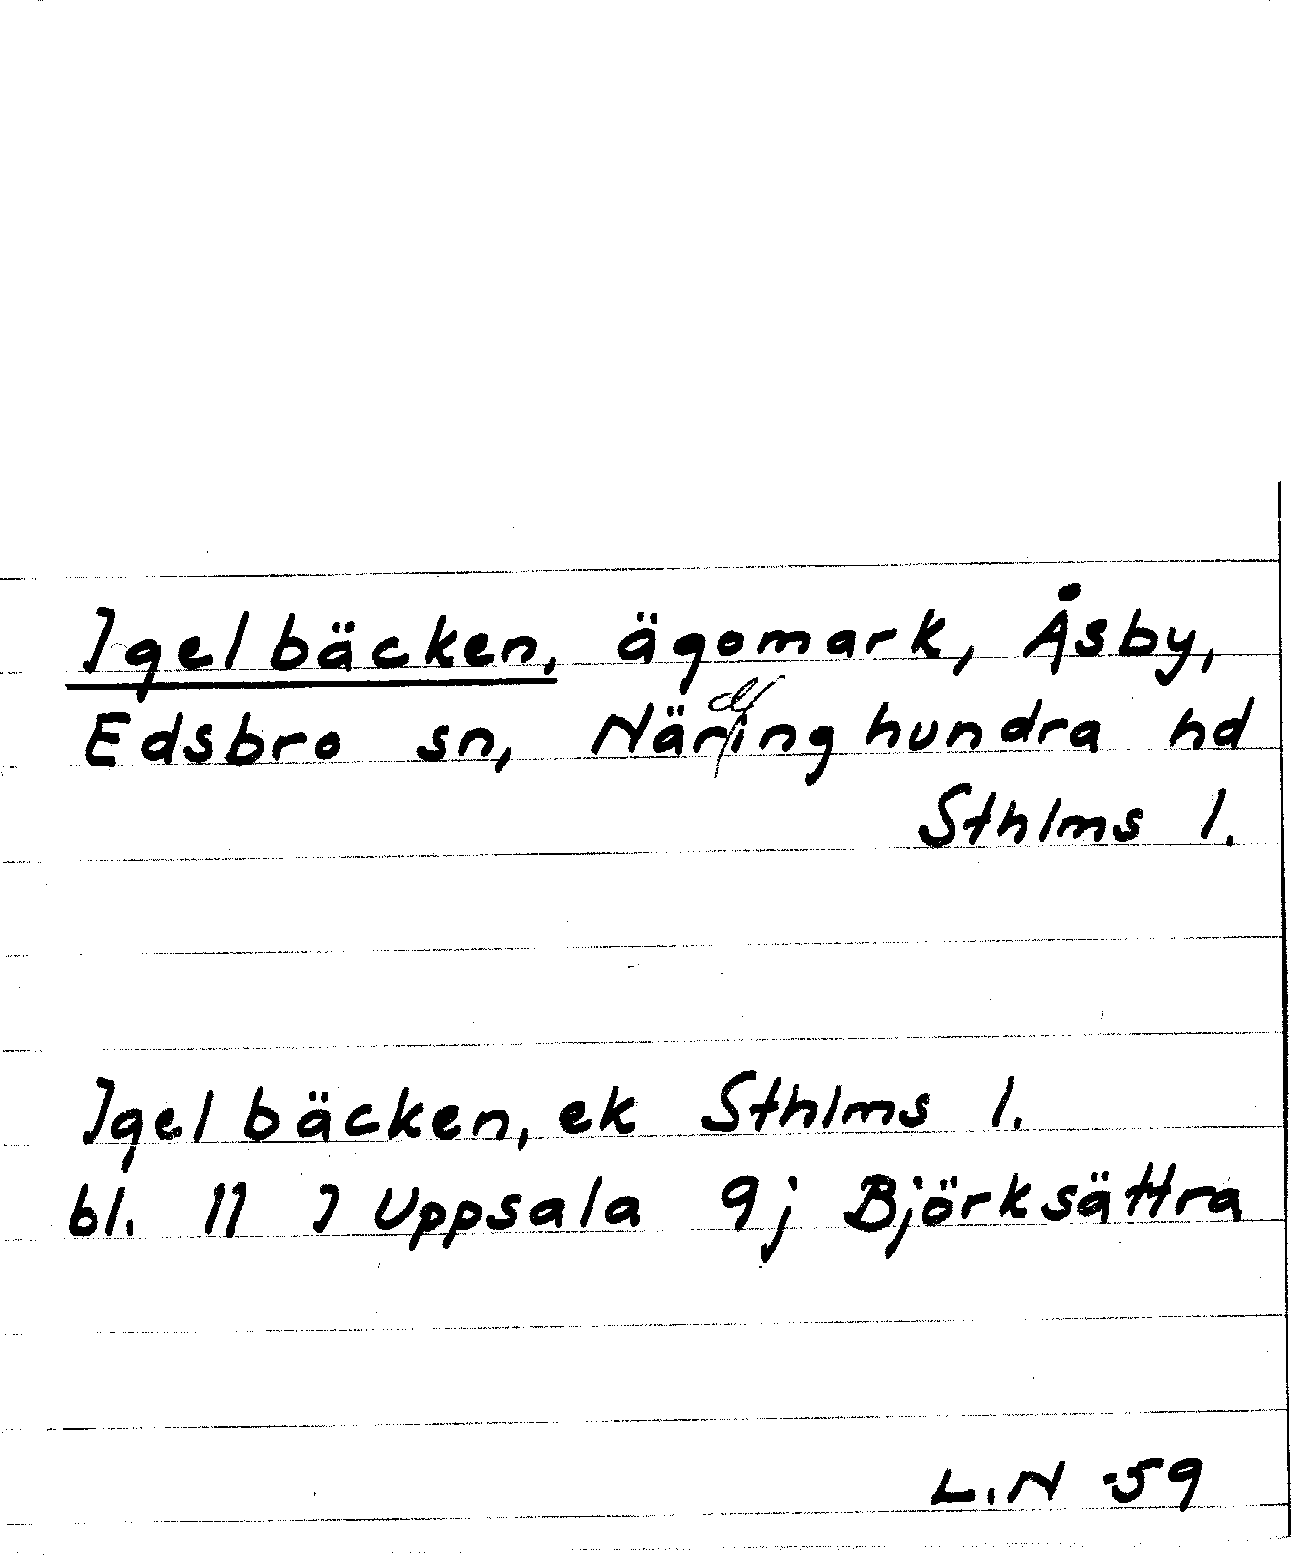 Igelbäcken, ägomark, Åsby,
Edsbro sn, Närdinghundra hd
Sthlms l.
Igelbäcken, ek Sthlms l.
bl. 11 I Uppsala 9j Björksättra
L.N -59